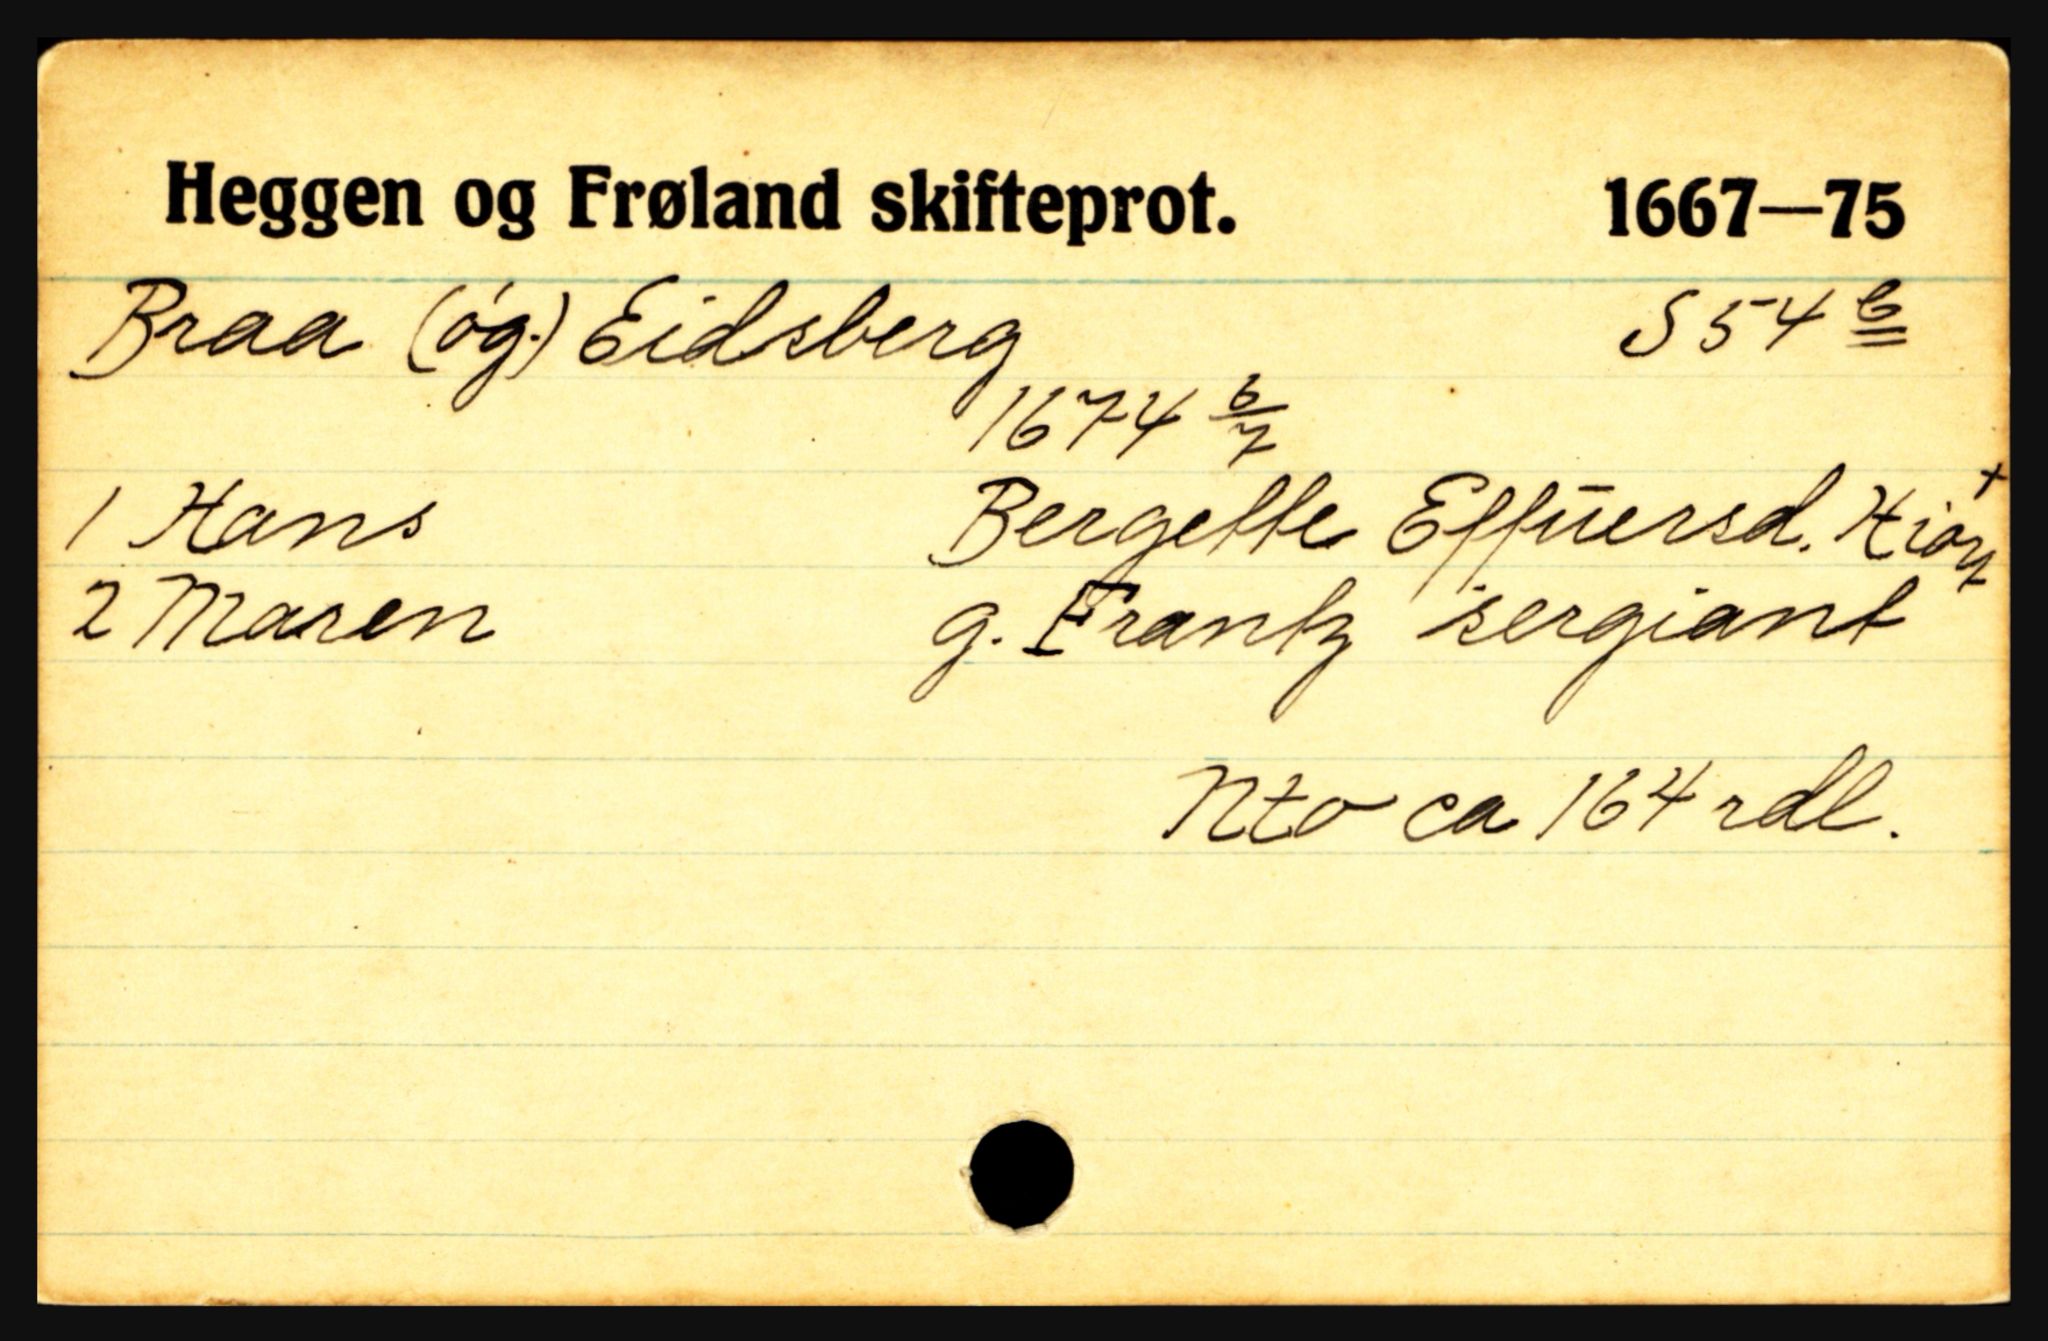 Heggen og Frøland skifteprot. 1667—75
Braa (óg.) Eidsberg S 54 b
1674 6/7
1 Hans Bergette Effūersd. +
2 Maren g. Frantz sergiant
Nto ca 164 rdl.